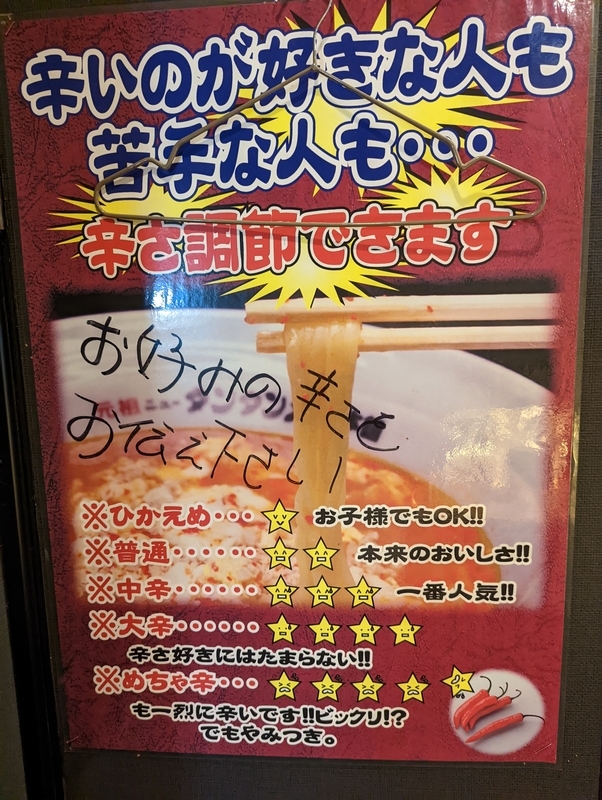 辛いのが好きな人も
苦手な人も・・・
辛さ調節できます
お好みの辛さを
お伝え下さい
元祖ニュータンタンメン
※ひかえめ・・・ お子様でもOK!!
※普通・・・・・・・ 本来のおいしさ!!
※中辛・・・・・・・ 一番人気!!
※大辛・・・・・・
辛さ好きにはたまらない!!
※めちゃ辛・・・
も一烈に辛いです!!ビックリ!?
でもやみつき。